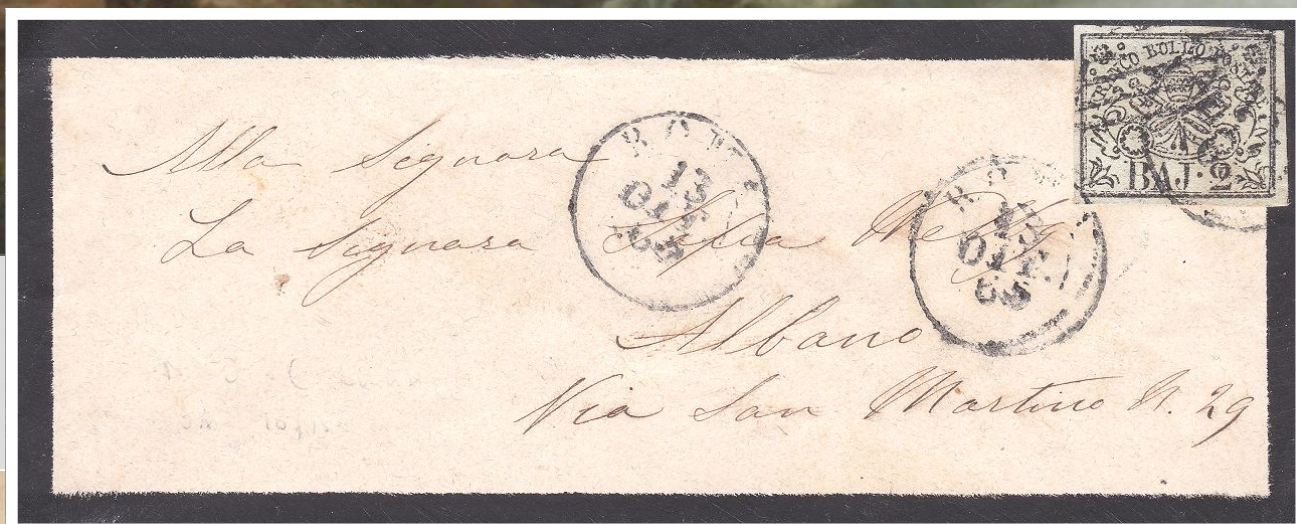 FRANCO BOLLO POSTALE
BAJ. 2
Alla Signora
La Signora Sofia
Albano
Via San Martino N. 29
ROMA
13
OTT
65
ROMA
13
OTT
65